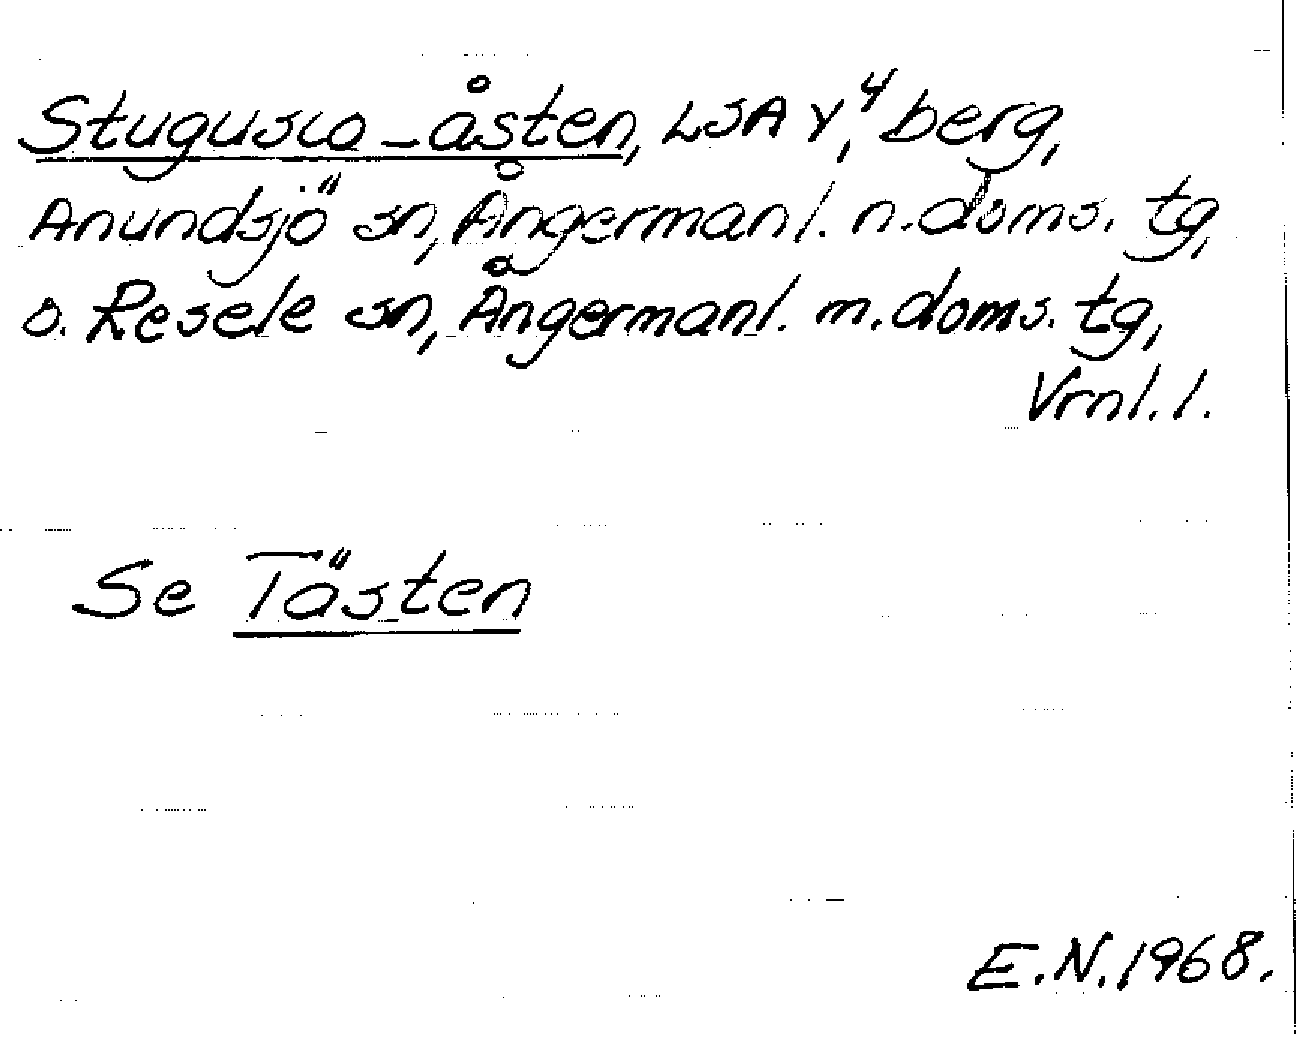 Stugusla-åsten, LSA Y, 4 berg,
Anundsjö sn, Ångermanl. n. doms. tg,
o. Resele sn, Ångermanl. m. doms. tg,
Vrnl. l.
Se Tåsten
E.N. 1968.